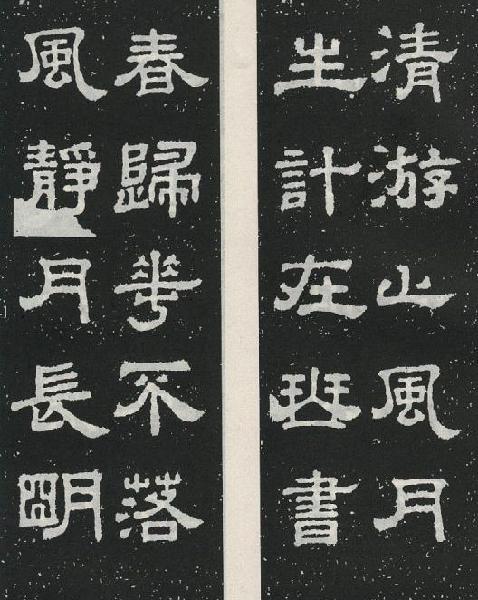 清游止風月
生計在班書
春歸華不落
風靜月長明